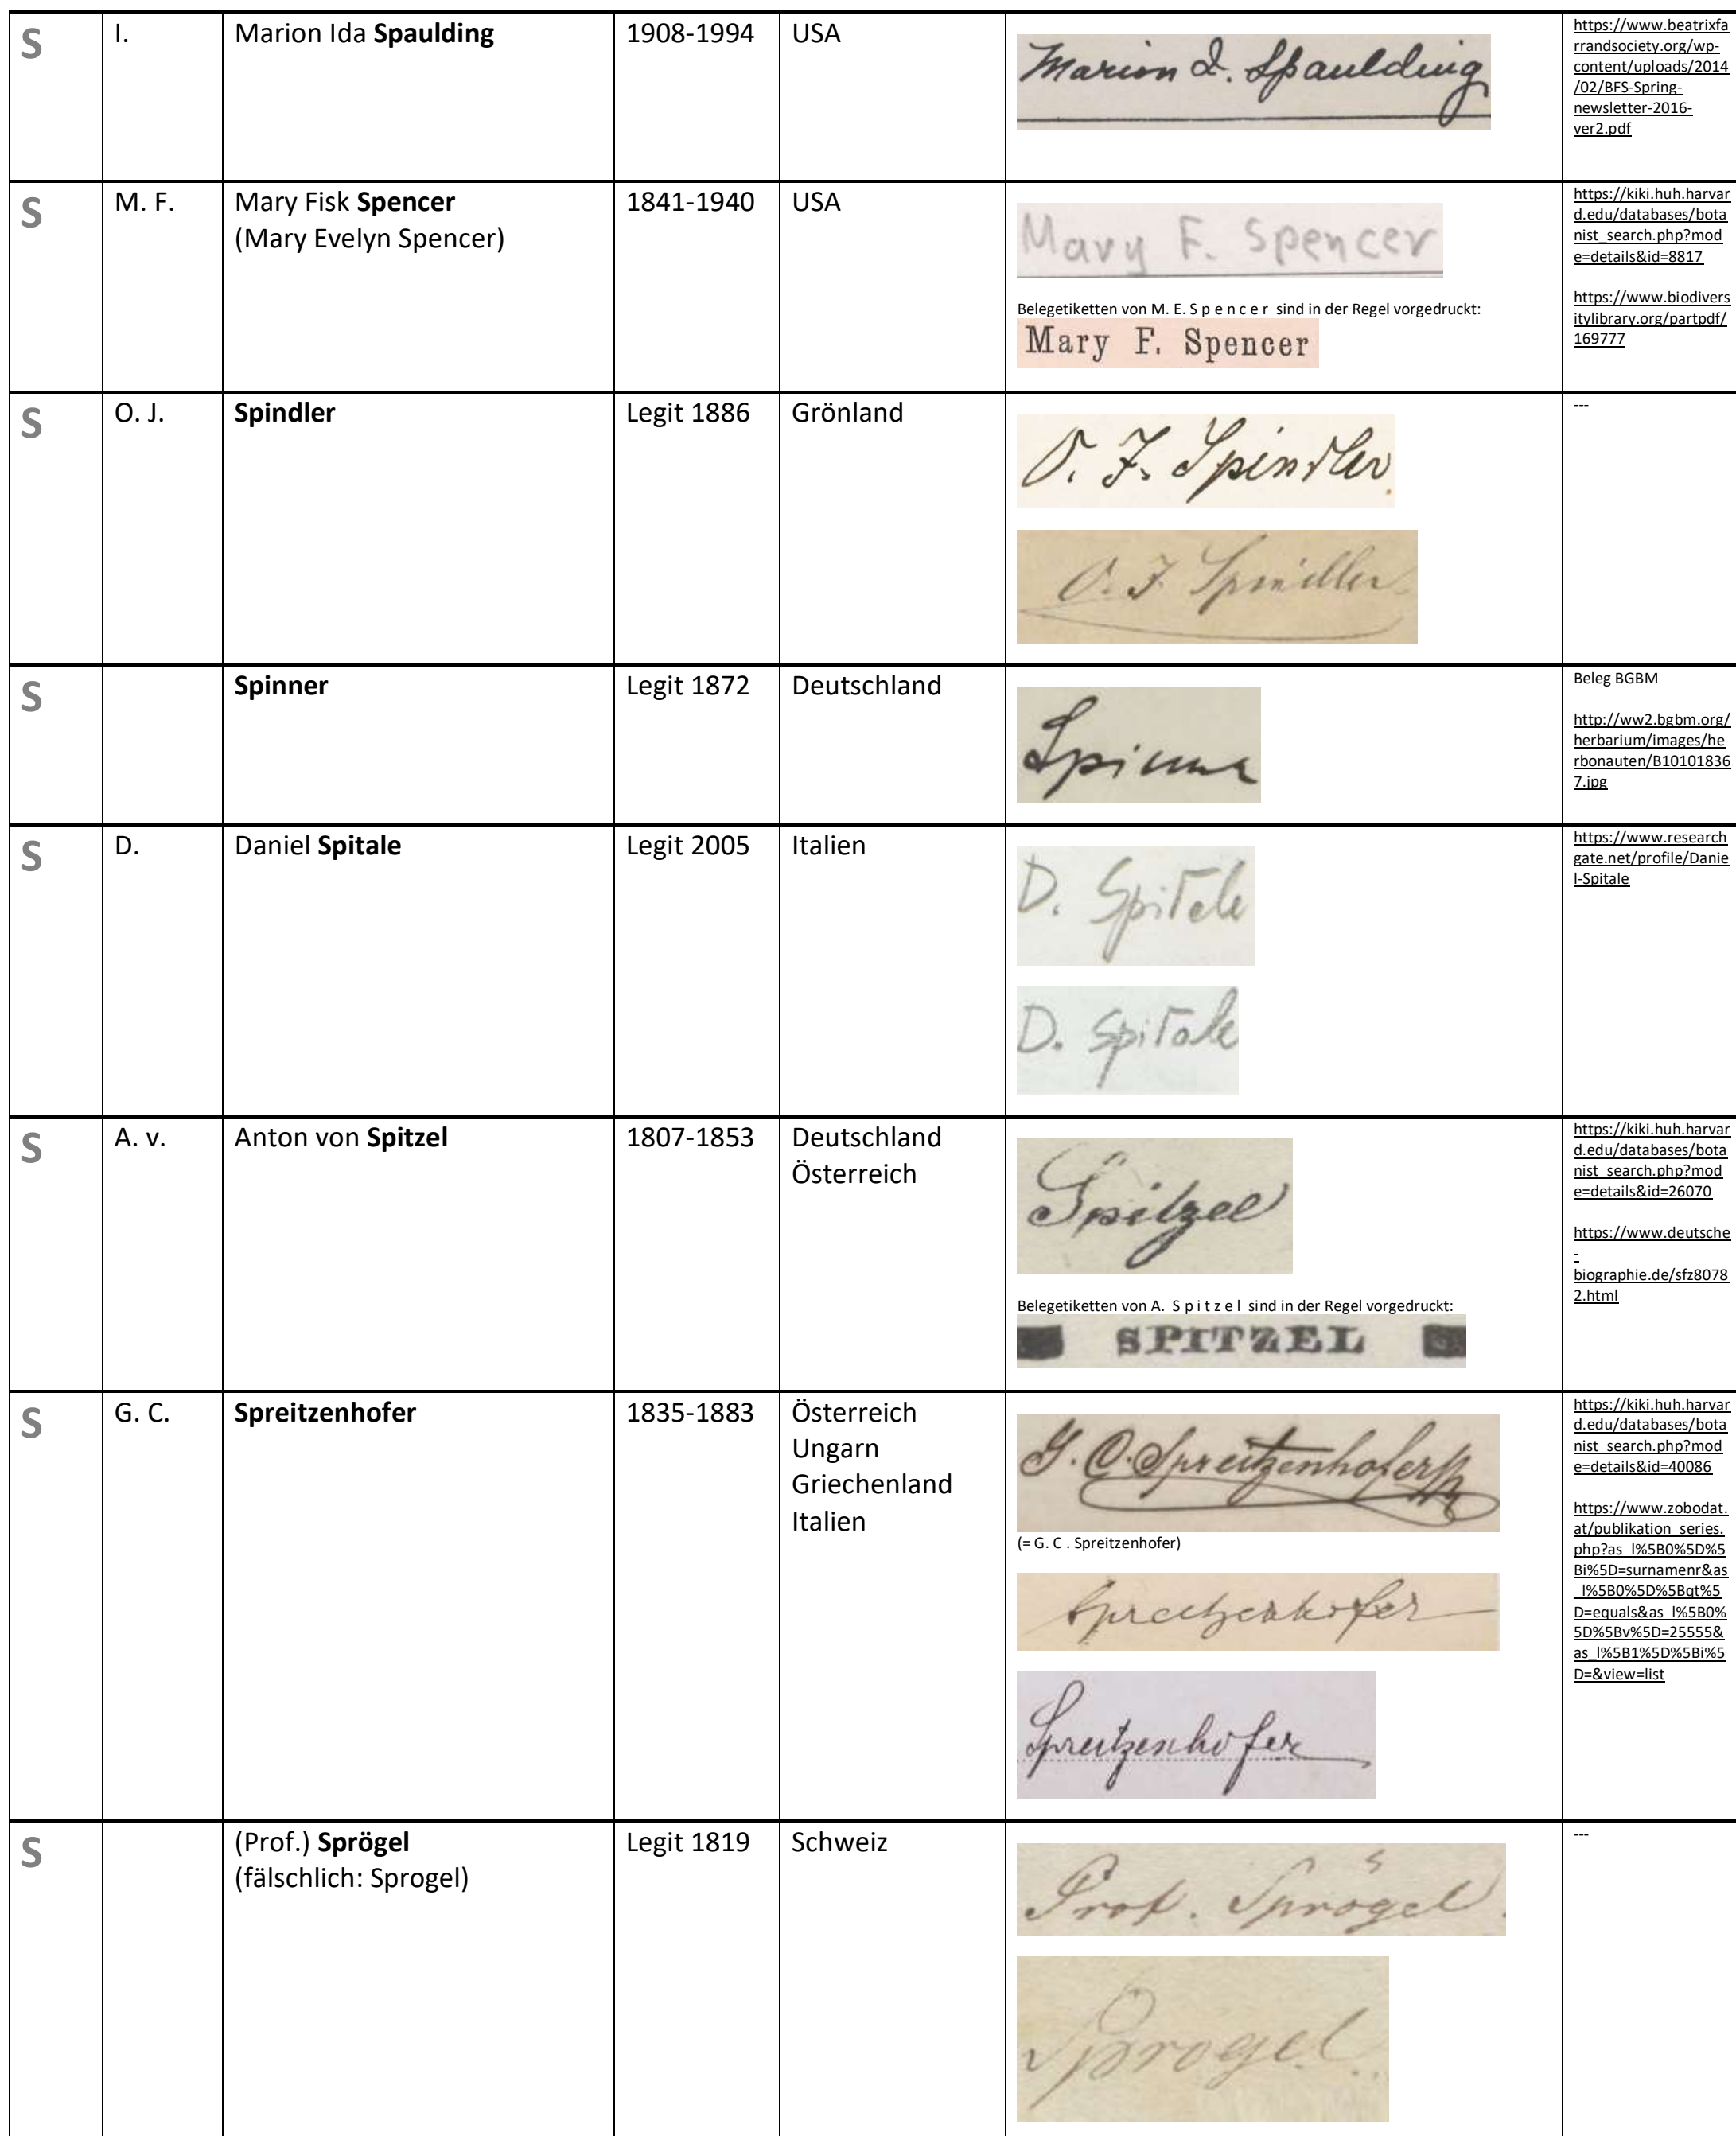 S I. Marion Ida Spaulding 1908-1994 USA
Marion I. Spaulding
https://www.beatrixfa
rrandsociety.org/wp-
content/uploads/2014
/02/BFS-Spring-
newsletter-2016-
ver2.pdf
S M. F. Mary Fisk Spencer 1841-1940 USA
(Mary Evelyn Spencer)
Mary F. Spencer
Belegetiketten von M. E. S p e n c e r sind in der Regel vorgedruckt:
Mary F. Spencer
https://kiki.huh.harvar
d.edu/databases/bota
nist_search.php?mod
e=details&id=8817
https://www.biodivers
itylibrary.org/partpdf/
169777
S O. J. Spindler Legit 1886 Grönland
O. J. Spindler.
O. J. Spindler
---
S Spinner Legit 1872 Deutschland
Spinner
Beleg BGBM
http://ww2.bgbm.org/
herbarium/images/he
rbonauten/B10101836
7.jpg
S D. Daniel Spitale Legit 2005 Italien
D. Spitale
D. Spitale
https://www.research
gate.net/profile/Danie
l-Spitale
S A. v. Anton von Spitzel 1807-1853 Deutschland
Österreich
Spitzel
Belegetiketten von A. S p i t z e l sind in der Regel vorgedruckt:
SPITZEL
https://kiki.huh.harvar
d.edu/databases/bota
nist_search.php?mod
e=details&id=26070
https://www.deutsche
-
biographie.de/sfz8078
2.html
S G. C. Spreitzenhofer 1835-1883 Österreich
Ungarn
Griechenland
Italien
G. C. Spreitzenhofer
(= G. C . Spreitzenhofer)
Spreitzenhofer
Spreitzenhofer
https://kiki.huh.harvar
d.edu/databases/bota
nist_search.php?mod
e=details&id=40086
https://www.zobodat.
at/publikation_series.
php?as_l%5B0%5D%5
Bi%5D=surnamenr&as
_l%5B0%5D%5Bqt%5
D=equals&as_l%5B0%
5D%5Bv%5D=25555&
as_l%5B1%5D%5Bi%5
D=&view=list
S (Prof.) Sprögel Legit 1819 Schweiz
(fälschlich: Sprogel)
Prof. Sprögel.
Sprogel.
---